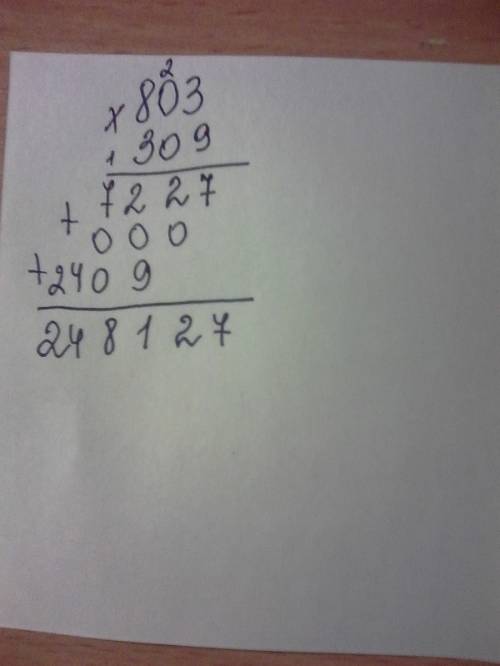 2
× 803
1 309
7227
+ 000
+ 2409
248127